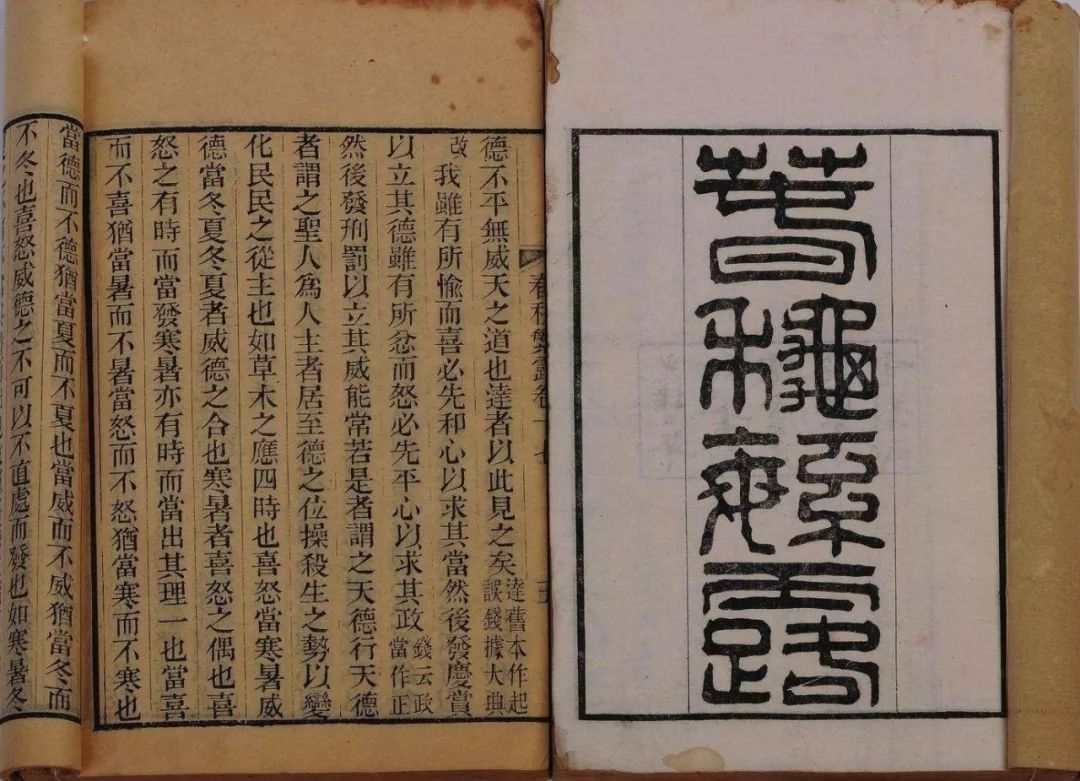 春龝緐露
春秋繁露卷十七 五
德不平無威天之道也達者以此見之矣達舊本作起誤錢據大典
改我雖有所愉而喜必先和心以求其當然後發慶賞
以立其德雖有所忿而怒必先平心以求其政錢云政當作正
然後發刑罰以立其威能常若是者謂之天德行天德
者謂之聖人爲人主者居至德之位操殺生之勢以變
化民民之從主也如草木之應四時也喜怒當寒暑威
德當冬夏冬夏者威德之合也寒暑者喜怒之偶也喜
怒之有時而當發寒暑亦有時而當出其理一也當喜
而不喜猶當暑而不暑當怒而不怒猶當寒而不寒也
當德而不德猶當夏而不夏也當威而不威猶當冬而
不冬也喜怒威德之不可以不直處而發也如寒暑冬